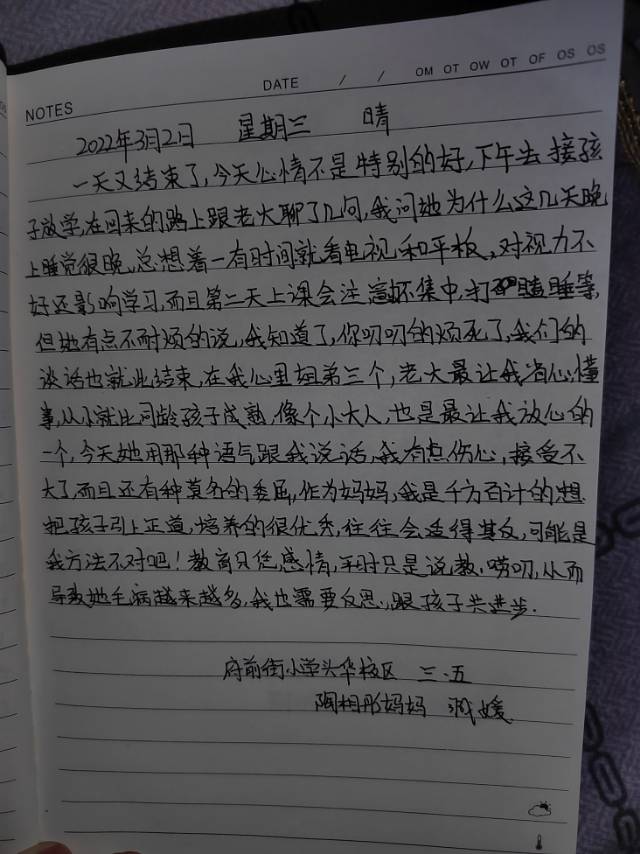 NOTES
DATE / /
OM OT OW OT OF OS OS
2022年3月2日 星期三 晴
一天又结束了,今天心情不是特别的好,下午去接孩
子放学,在回来的路上跟老大聊了几句,我问她为什么这几天晚
上睡觉很晚,总想着一有时间就看电视,和平板,对视力不
好还影响学习,而且第二天上课会注意坏集中,打瞌睡等,
但她有点不耐烦的说,我知道了,你叨叨的烦死了,我们的
谈话也就此结束,在我心里姐弟三个,老大最让我省心,懂
事,从小就比同龄孩子成熟,像个小大人,也是最让我放心的
一个,今天她用那种语气跟我说话,我有点伤心,接受不
大了,而且还有种莫名的委屈,作为妈妈,我是千方百计的想
把孩子引上正道,培养的很优秀,往往会适得其反,可能是
我方法不对吧!教育只凭感情,平时只是说教,唠叨,从而
导致她毛病越来越多,我也需要反思,跟孩子共进步.
府前街小学头华校区 三.五
陶相彤妈妈 媛